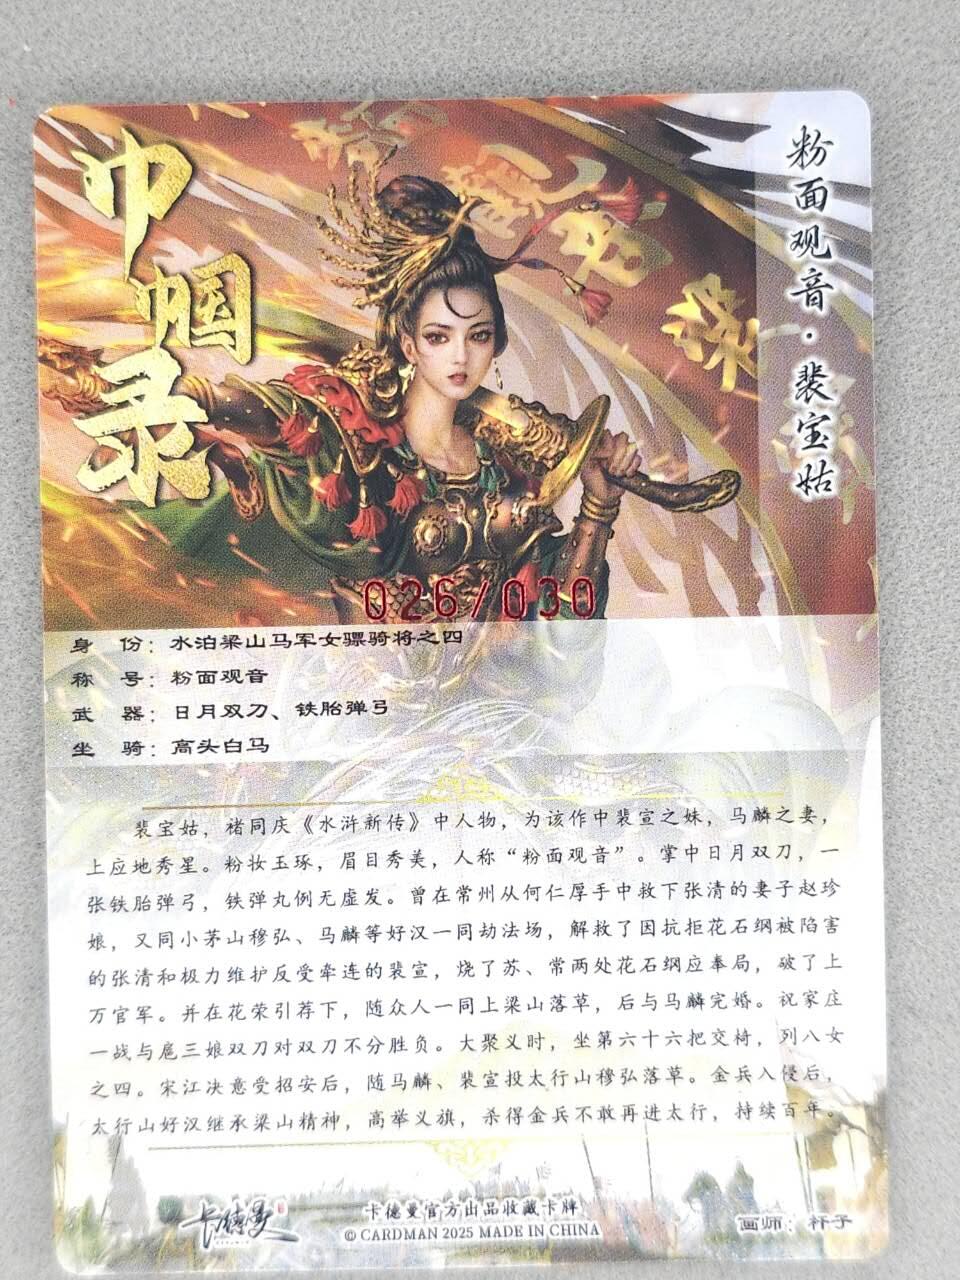 巾帼录
粉面观音·裴宝姑
026/030
身 份：水泊梁山马军女骠骑将之四
称 号：粉面观音
武 器：日月双刀、铁胎弹弓
坐 骑：高头白马
裴宝姑，褚同庆《水浒新传》中人物，为该作中裴宣之妹，马麟之妻，
上应地秀星。粉妆玉琢，眉目秀美，人称“粉面观音”。掌中日月双刀，一
张铁胎弹弓，铁弹丸例无虚发。曾在常州从何仁厚手中救下张清的妻子赵珍
娘，又同小茅山穆弘、马麟等好汉一同劫法场，解救了因抗拒花石纲被陷害
的张清和极力维护反受牵连的裴宣，烧了苏、常两处花石纲应奉局，破了上
万官军。并在花荣引荐下，随众人一同上梁山落草，后与马麟完婚。祝家庄
一战与扈三娘双刀对双刀不分胜负。大聚义时，坐第六十六把交椅，列八女
之四。宋江决意受招安后，随马麟、裴宣投太行山穆弘落草。金兵入侵后，
太行山好汉继承梁山精神，高举义旗，杀得金兵不敢再进太行，持续百年。
卡德曼
卡德曼官方出品收藏卡牌
© CARDMAN 2025 MADE IN CHINA
画师：杯子